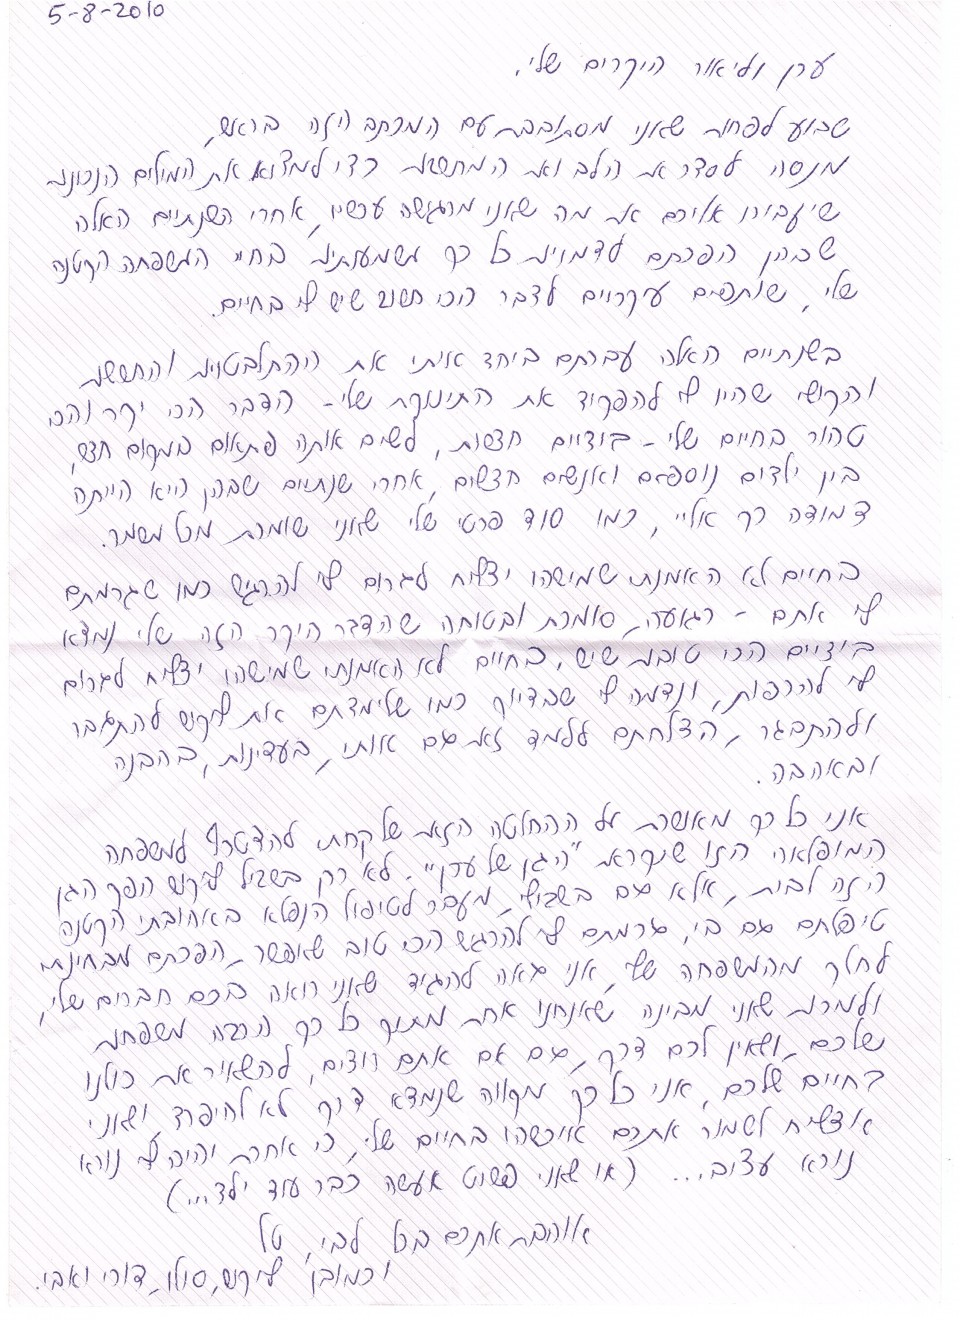 5-8-2010
ערן וליאור היקרים שלי,
שבוע לפחות שאני מסתובבת עם המכתב הזה בראש,
מנסה לסדר את הלב ואת המחשבות כדי למצוא את המילים הנכונות
שיעבירו אליכם את מה שאני מרגישה עכשיו, אחרי השנתיים האלה
שבהן הפכתם לדמויות כל כך משמעותיות בחיי המשפחה הקטנה
שלי, שותפים עיקריים לדבר הכי חשוב שיש לי בחיים.
בשנתיים האלה עברתם ביחד איתי את ההתלבטויות והחששות
והקושי שהיו לי להפקיד את התינוקת שלי - הדבר הכי יקר והכי
טהור בחיים שלי - בידיים חדשות, לשים אותה פתאום במקום חדש,
בין ילדים נוספים ואנשים חדשים, אחרי שנתיים שבהן היא הייתה
צמודה רק אליי, כמו סוד פרטי שלי שאני שומרת מכל משמר.
בחיים לא האמנתי שמישהו יצליח לגרום לי להרגיש כמו שגרמתם
לי אתם - רגועה, סומכת ובטוחה שהדבר היקר הזה שלי נמצא
בידיים הכי טובות שיש. בחיים לא האמנתי שמישהו יצליח לגרום
לי להרפות, ונדמה לי שבדיוק כמו שלימדתם את ליקוש להתגבר
ולהתבגר, הצלחתם ללמד זאת גם אותי, בעדינות, בהבנה
ובאהבה.
אני כל כך מאושרת על ההחלטה הזאת שלקחתי להצטרף למשפחה
המופלאה הזו שנקראת "הגן של ערן". לא רק בשביל ליקוש הפך הגן
הזה לבית, אלא גם בשבילי, מעבר לטיפול הנפלא באהובתי הקטנה
טיפלתם גם בי, גרמתם לי להרגיש הכי טוב שאפשר, הפכתם מבחינתי
לחלק מהמשפחה שלי, אני גאה להגיד שאני רואה בכם חברים שלי,
ולמרות שאני מבינה שאנחנו אחת מתוך כל כך הרבה משפחות
שלכם, ושאין לכם דרך, גם אם אתם רוצים, להשאיר את כולנו
בחיים שלכם, אני כל כך מקווה שנמצא דרך לא להיפרד, ושאני
אצליח לשמור אתכם איכשהו בחיים שלי, כי אחרת יהיה לי נורא
נורא עצוב... (או שאני פשוט אעשה כבר עוד ילד...)
אוהבת אתכם בכל לבי, טל
וכמובן ליקוש, סולו, דורי ואבי.